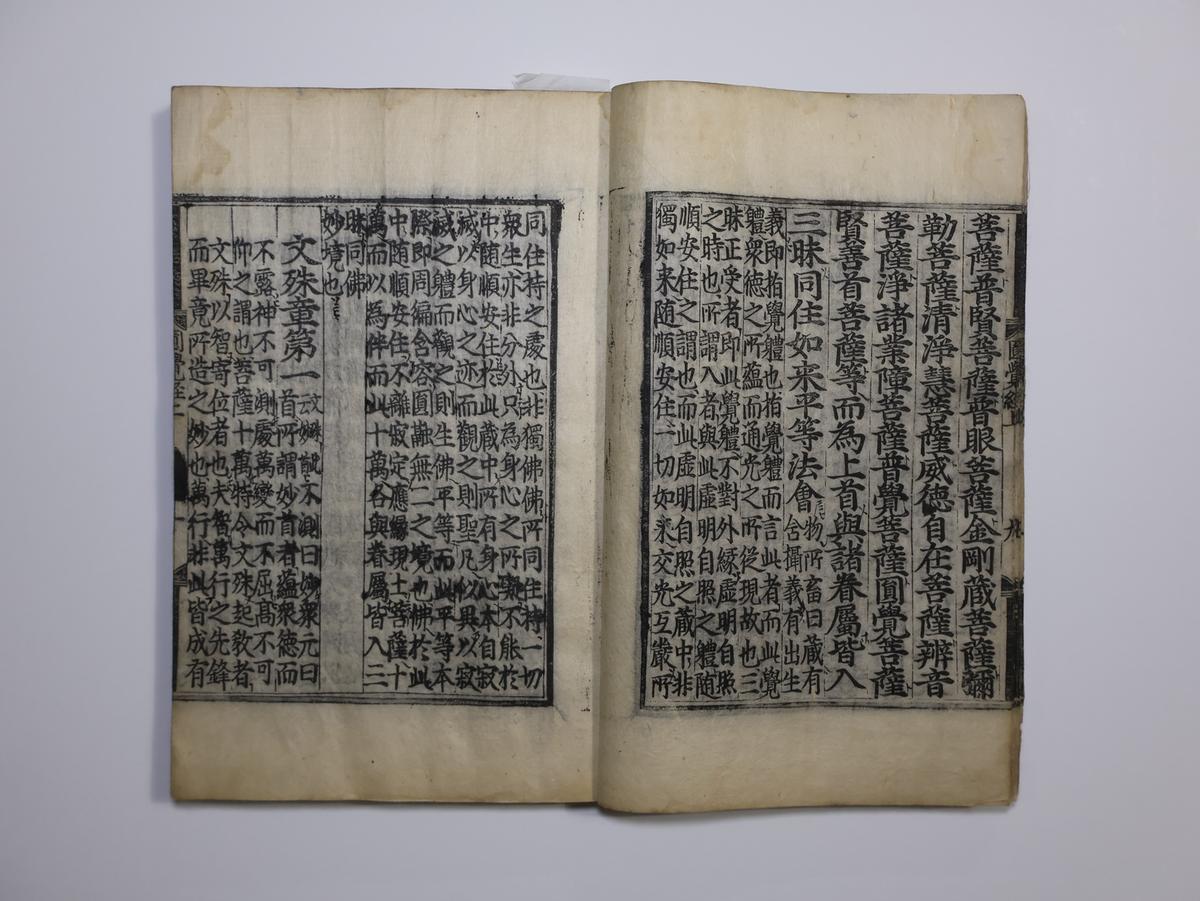 菩薩普賢菩薩普眼菩薩金剛蔵菩薩彌
勒菩薩清淨慧菩薩威徳自在菩薩辨音
菩薩淨諸業障菩薩普覺菩薩圓覺菩薩
賢善首菩薩等而為上首與諸眷屬皆入
三昧同住如来平等法會
物所畜曰蔵有
含攝義有出生
義即指覺體也指覺體而言此者而此覺
體衆徳之所蘊而通光之所從現故也三
昧正受者即此覺體不對外緣虚明自照
之時也所謂入者與此虚明自照之體随
順安住之謂也而此虚明自照之蔵中非
獨如来随順安住一切如来交光互嚴所
同住持之處也非獨佛佛所同住持一切
衆生亦非分外只為身心之所不能於
中随順安住於此蔵中所有身心本自寂
滅以身心之亦而觀之則聖凡以異以寂
滅之體而觀之則生佛平等而此平等本
際即周徧含容圓融無二之境也佛於此
中随順安住不離寂定應緣現土菩薩十
萬而以為伴而此十萬各與眷屬皆入三
昧同佛
妙境也
文殊章第一
首所謂妙首者蘊衆徳而
不露神不可測處萬變而不屈髙不可
仰之謂也菩薩十萬特令文殊起教者
文殊以智寄位者也夫智萬行之先鋒
而畢竟所造之妙也萬行非此皆成有
圓覺經